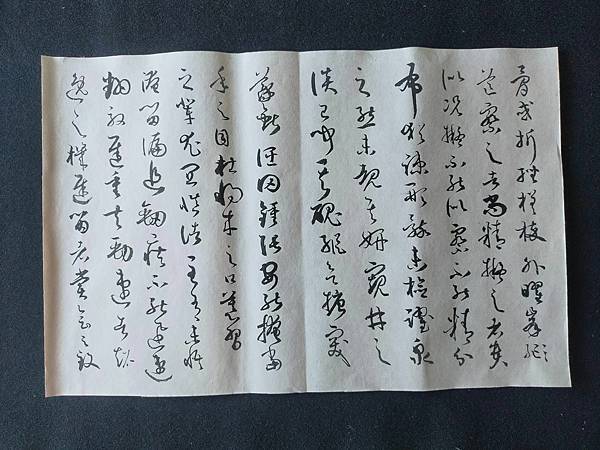 骨或折挫槎枿外曜鋒
芒察之者尚精擬之者貴
似況擬不能似察不能精分
布猶疎形骸未檢躍泉
之態未覩其妍窺井之
談已聞其醜縱欲搪突
羲獻誣罔鍾張安能掩當
年之目杜將來之口慕習
之輩尤宜慎諸至有未悟
淹留偏追勁疾不能迅速
翻效遲重夫勁速者超
逸之機遲留者賞會之致